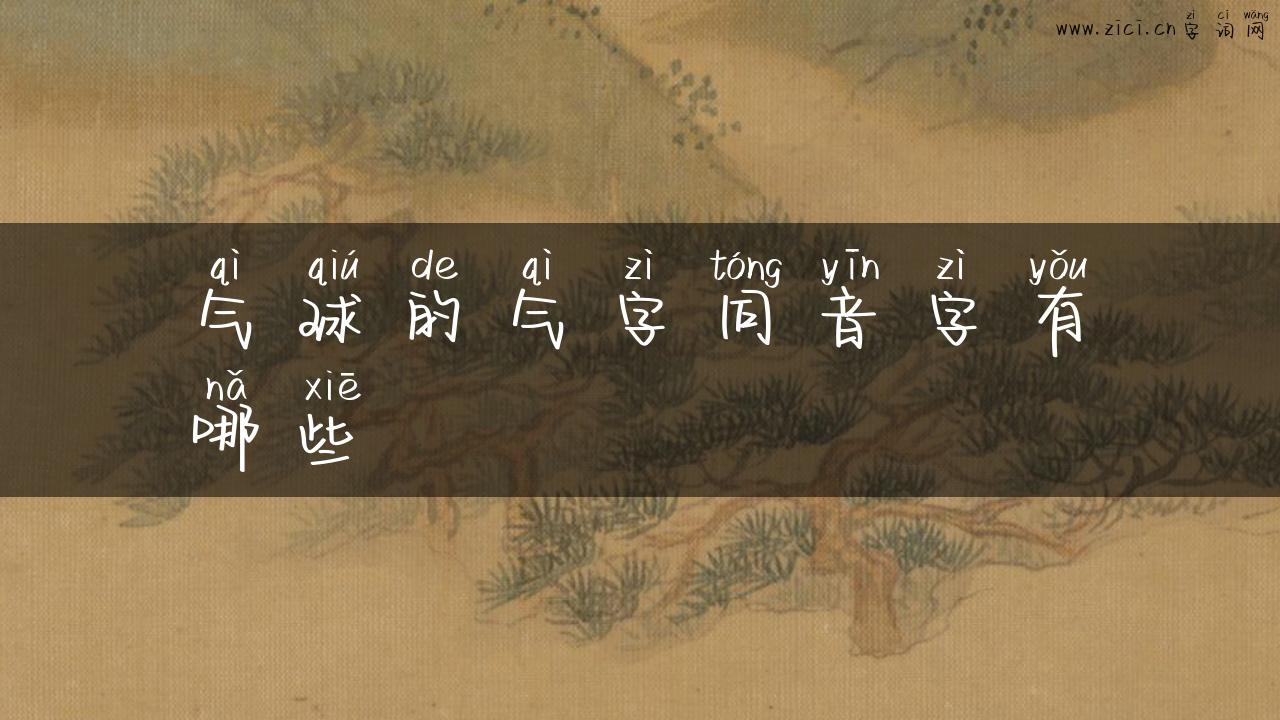 zì cí wǎng
www.zici.cn 字 词 网
qì qiú de qì zì tóng yīn zì yǒu
气 球 的 气 字 同 音 字 有
nǎ xiē
哪 些